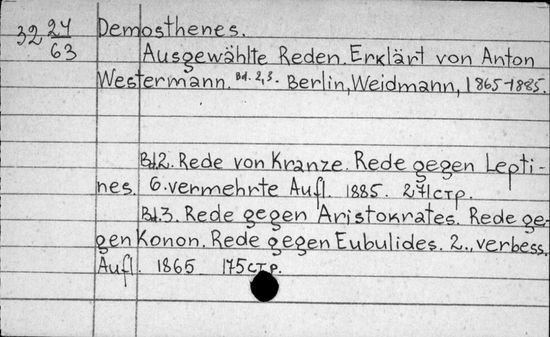 32 24/63 Demosthenes.
Ausgewählte Reden. Erklärt von Anton
Westermann. Bd. 2,3. Berlin, Weidmann, 1865-1885.
Bd.2. Rede von Kranze. Rede gegen Lepti-
nes. 6. vermehrte Aufl. 1885. 271 стр.
Bd.3. Rede gegen Aristokrates. Rede ge-
gen Konon. Rede gegen Eubulides. 2., verbess.
Aufl. 1865 175 стр.